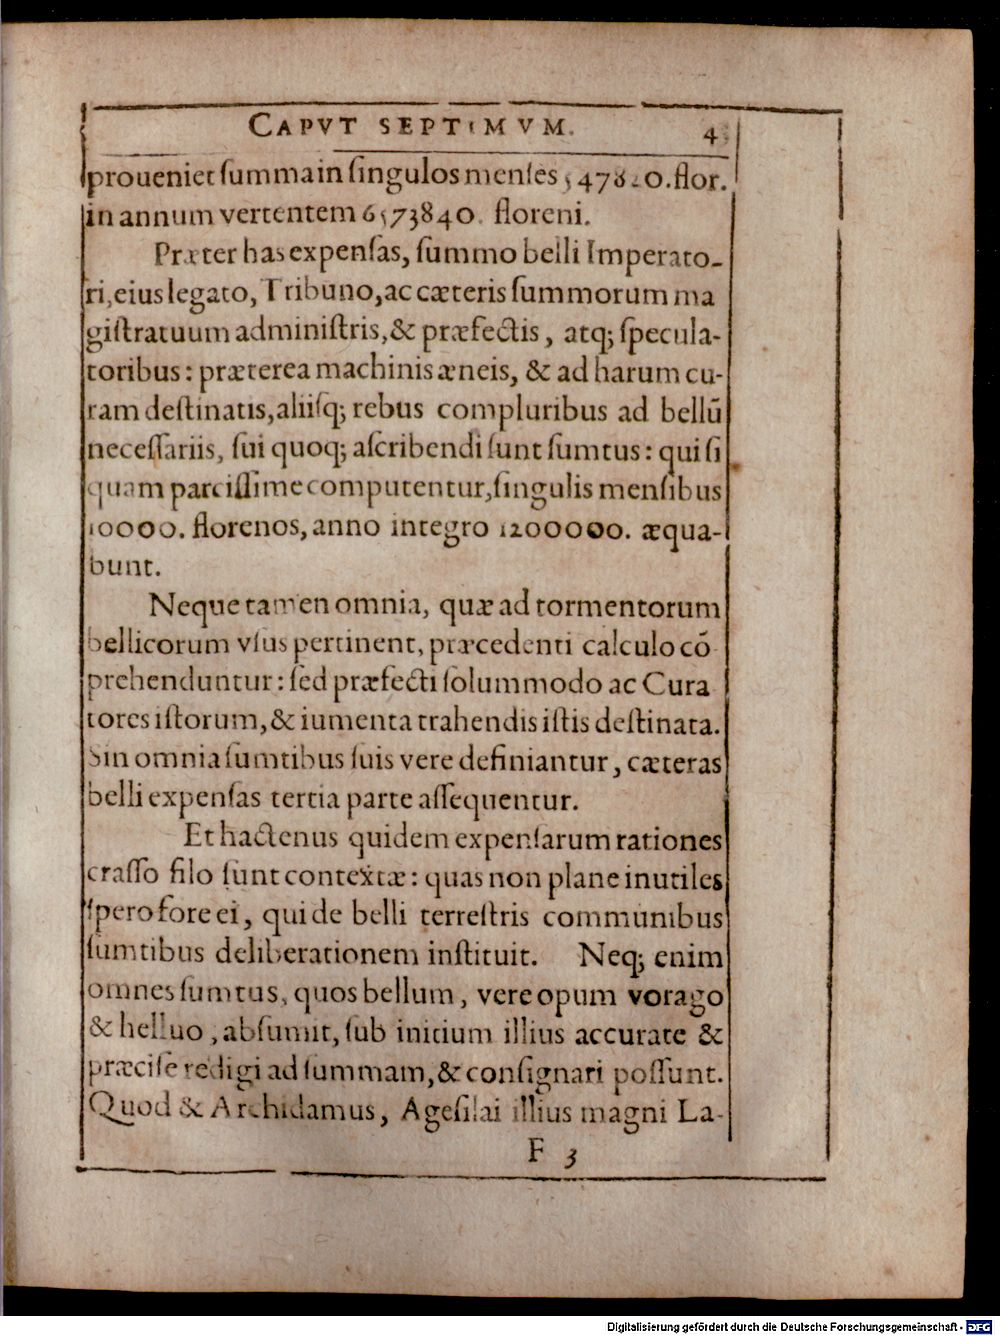 CAPVT SEPTIMVM. 4
proueniet summa in singulos menses 547820. flor.
in annum vertentem 6573840. floreni.
Præter has expensas, summo belli Imperato-
ri, eius legato, Tribuno, ac cæteris summorum ma
gistratuum administris, & præfectis, atq; specula-
toribus: præterea machinis æneis, & ad harum cu-
ram destinatis, aliisq; rebus compluribus ad bellū
necessariis, sui quoq; ascribendi sunt sumtus: qui si
quam parcissime computentur, singulis mensibus
10000. florenos, anno integro 1200000. æqua-
bunt.
Neque tamen omnia, quæ ad tormentorum
bellicorum vsus pertinent, præcedenti calculo cō
prehenduntur: sed præfecti solummodo ac Cura
tores istorum, & iumenta trahendis istis destinata.
Sin omnia sumtibus suis vere definiantur, cæteras
belli expensas tertia parte assequentur.
Et hactenus quidem expensarum rationes
crasso filo sunt contextæ: quas non plane inutiles
spero fore ei, qui de belli terrestris communibus
sumtibus deliberationem instituit. Neq; enim
omnes sumtus, quos bellum, vere opum vorago
& helluo, absumit, sub initium illius accurate &
præcise redigi ad summam, & consignari possunt.
Quod & Archidamus, Agesilai illius magni La-
F 3
Digitalisierung gefördert durch die Deutsche Forschungsgemeinschaft - DFG